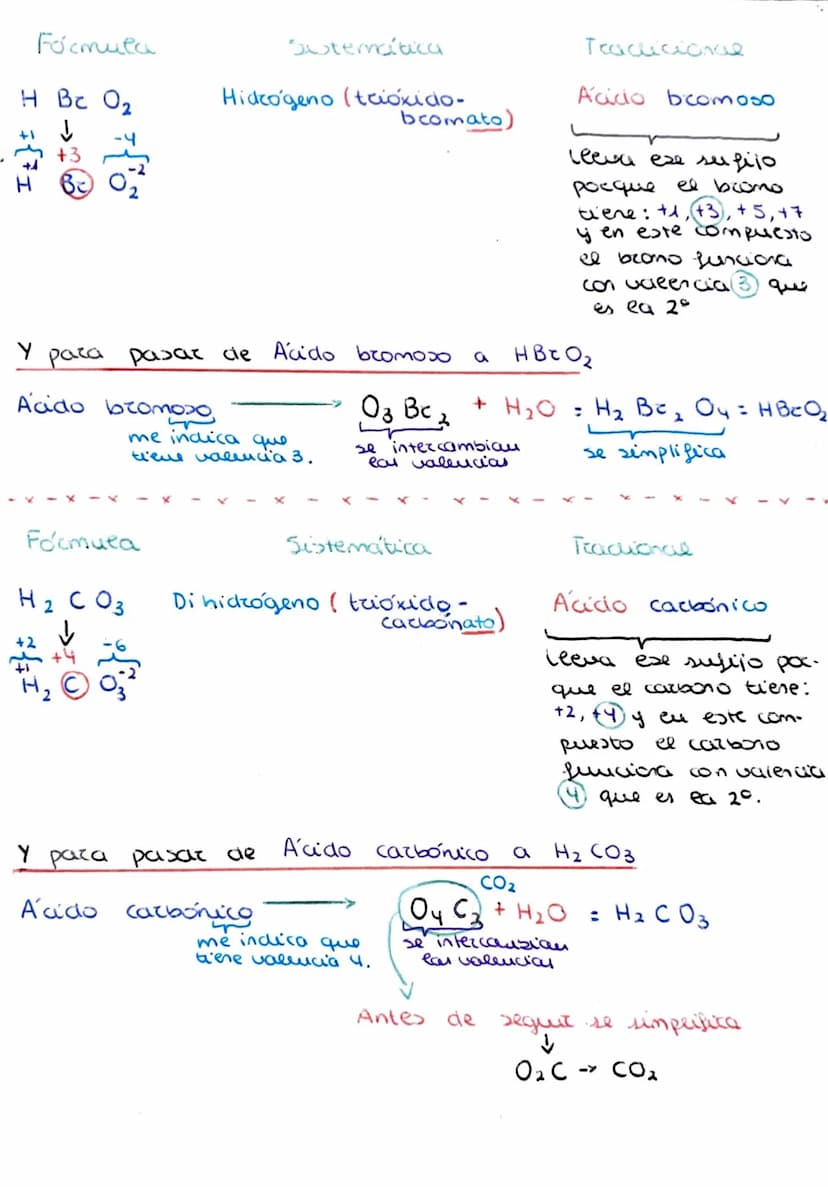 Fórmula Sistemática Tradicional
H Br O2 Hidrógeno (trióxido- Ácido bromoso
bromato)
+1 +3 -4
+1 -2
H Br O2
lleva ese sufijo
porque el bromo
tiene: +1, +3, +5, +7
y en este compuesto
el bromo funciona
con valencia 3 que
es la 2º
Y para pasar de Ácido bromoso a HBrO2
Ácido bromoso → O3 Br2 + H2O = H2 Br2 O4 = HBrO2
me indica que
tiene valencia 3.
se intercambian
las valencias
se simplifica
Fórmula Sistemática Tradional
H2 C O3 Dihidrógeno (trióxido- Ácido carbónico
carbonato)
+2 +4 -6
+1 -2
H2 C O3
lleva ese sufijo por-
que el carbono tiene:
+2, +4 y en este com-
puesto el carbono
funciona con valencia
4 que es la 2º.
Y para pasar de Ácido carbónico a H2CO3
CO2
Ácido carbónico → O4 C2 + H2O = H2 C O3
me indica que
tiene valencia 4.
se intercambian
las valencias
Antes de seguir se simplifica
↓
O2C → CO2